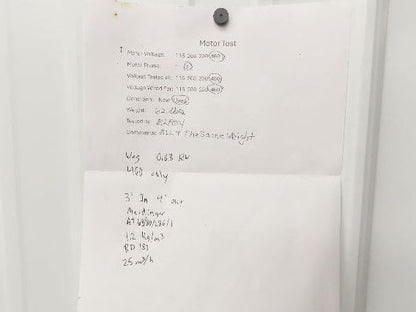 Motor Test
Motor Voltage: 115 208 230 460
Motor Phase: 3
Voltage Tested at: 115 208 230 460
Voltage Wired For: 115 208 230 460
Condition: New Used
Weight: 62.6
Tested By:
Comments: All 4 The Same Weight
Weg 0.63 KW
MGD only
3" In 4" out
Meidinger
1.2 Kg/m3
RD 151
25 m3/h